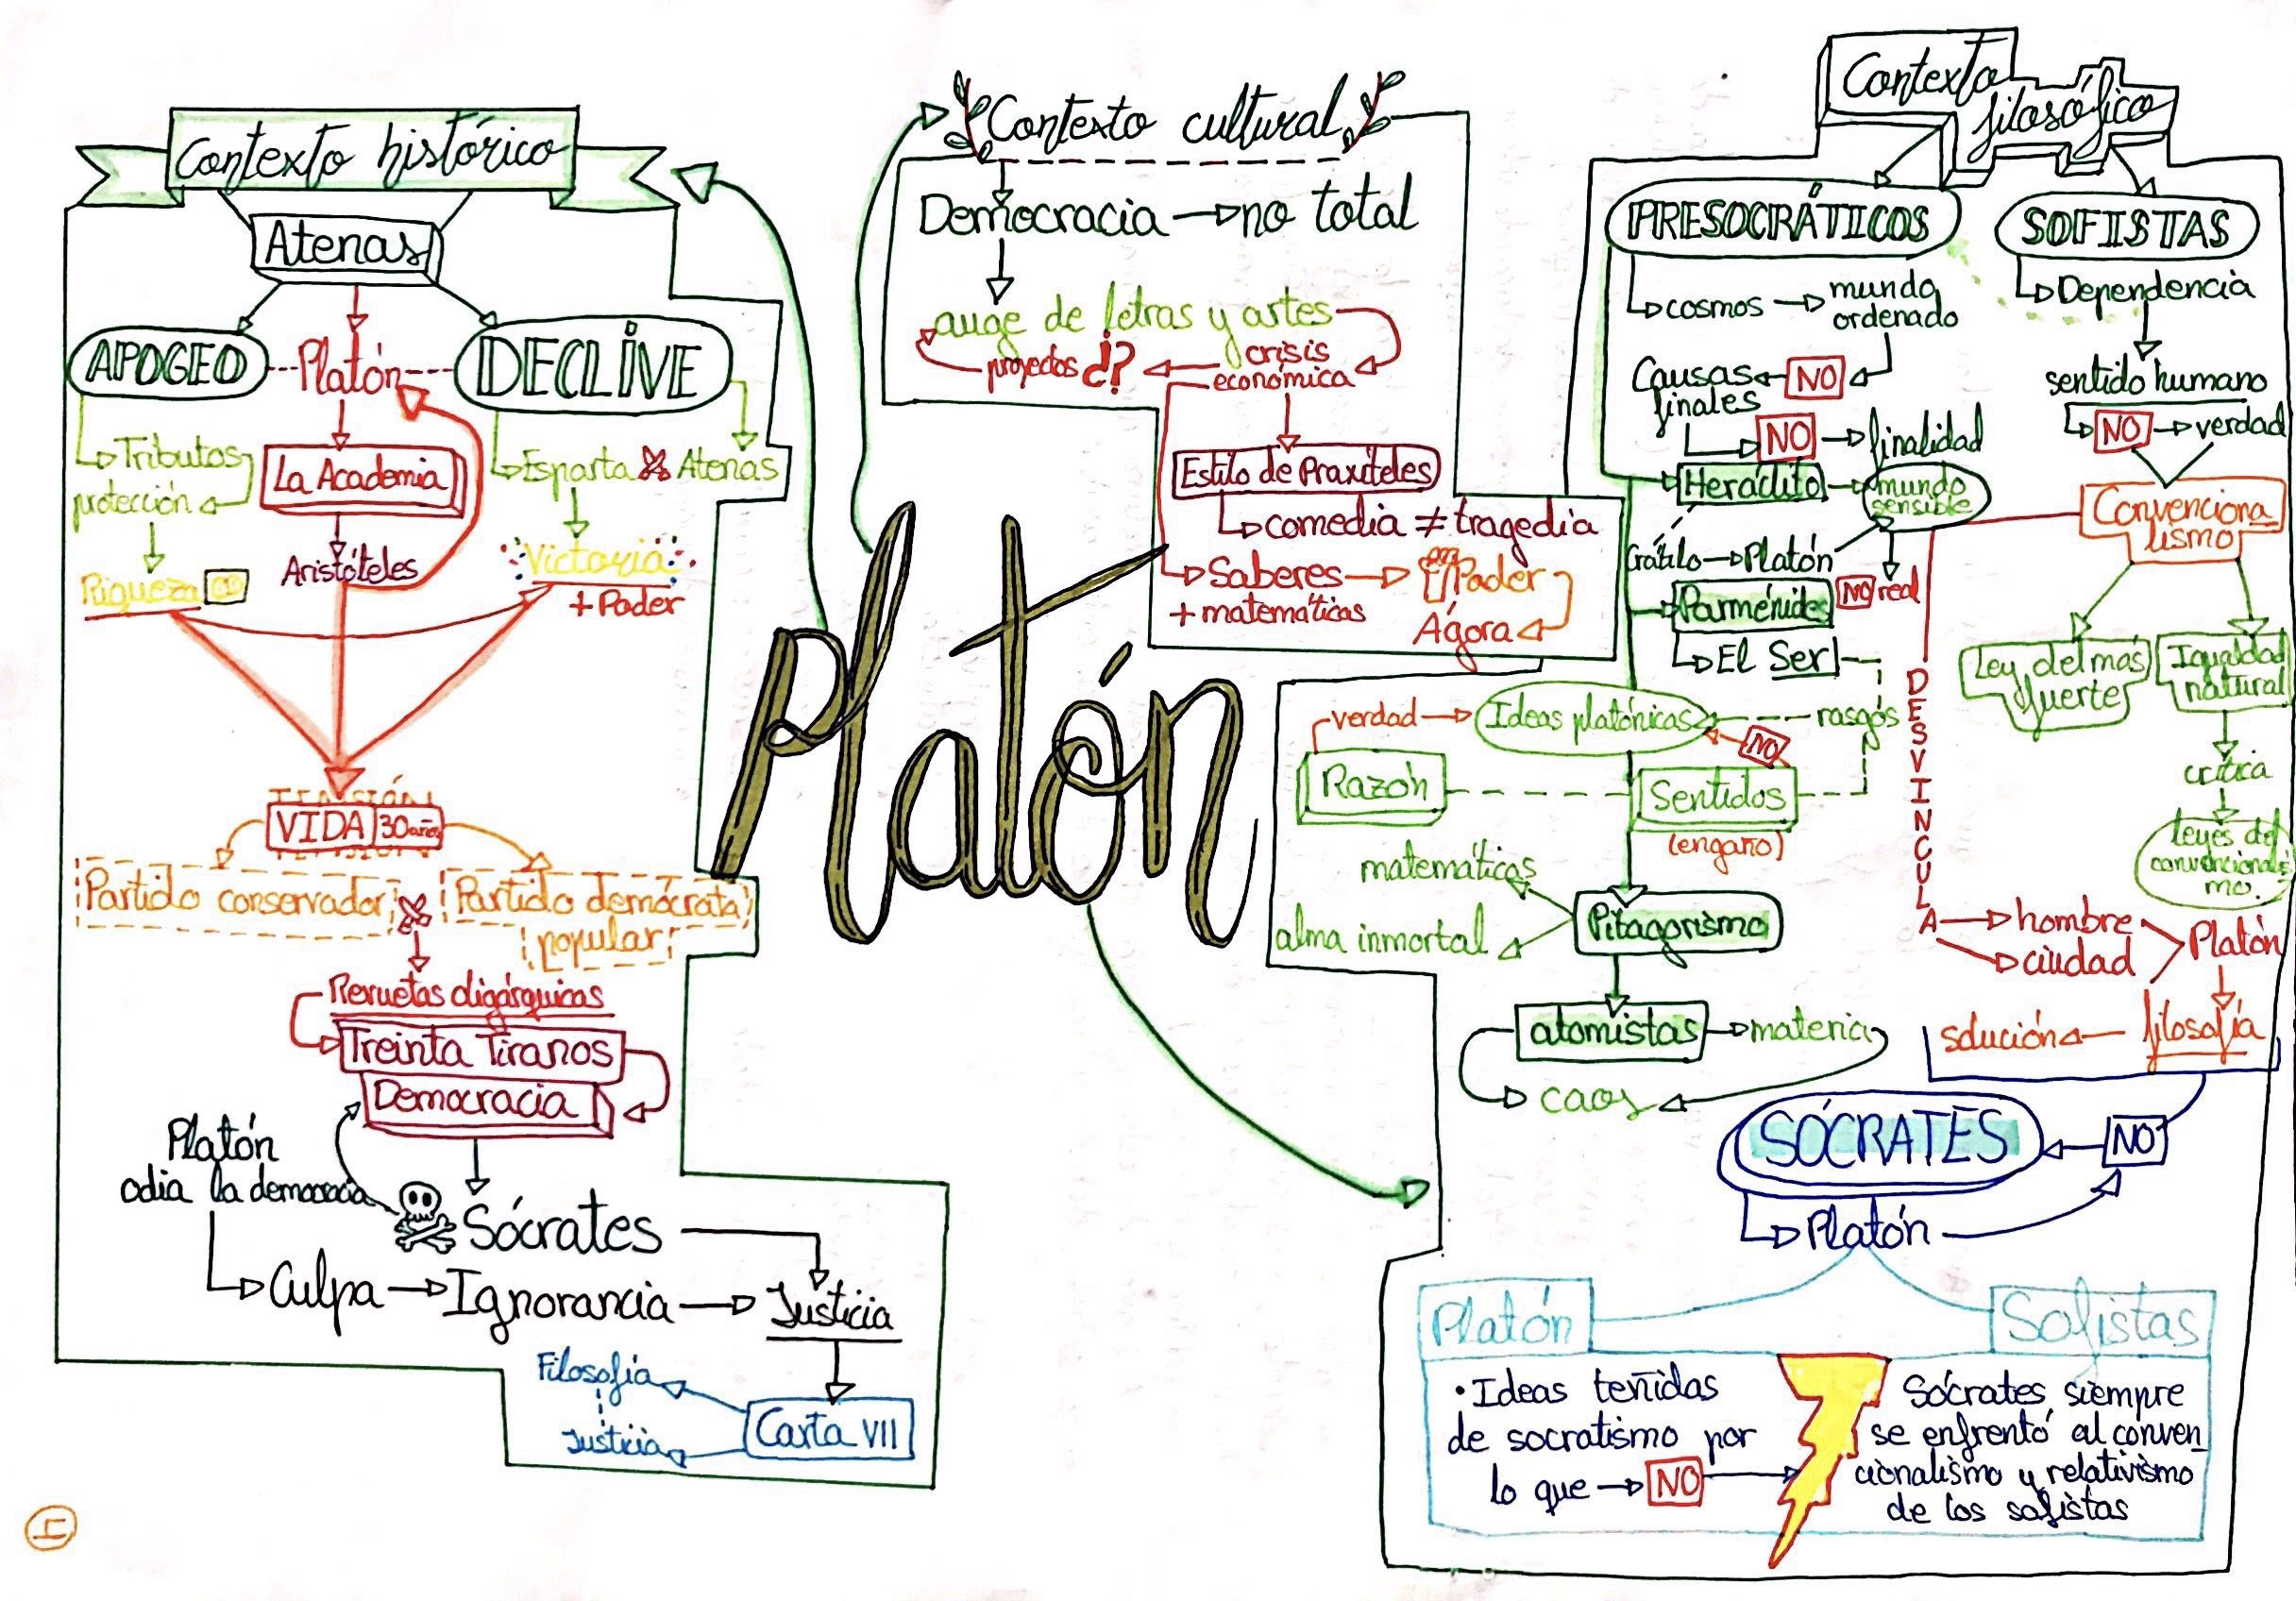 Contexto histórico
Atenas
APOGEO
Platón
DECLIVE
Tributos
protección
Riqueza
La Academia
Aristóteles
Esparta
Atenas
Victoria
+ Poder
VIDA 30 años
Partido conservador
Partido demócrata
popular
Revueltas oligárquicas
Treinta Tiranos
Democracia
Platón
odia la democracia
Sócrates
Culpa
Ignorancia
Justicia
Filosofía
Justicia
Carta VII
I
Platón
Contexto cultural
Democracia
no total
auge de letras y artes
proyectos ¿?
crisis
económica
Estilo de Praxíteles
comedia ≠ tragedia
Saberes
+ matemáticas
Poder
Ágora
Contexto
filosófico
PRESOCRÁTICOS
cosmos
mundo
ordenado
Causas
finales
NO
NO
finalidad
Heráclito
mundo
sensible
Crátilo
Platón
NO real
Parménides
El Ser
verdad
Ideas platónicas
rasgos
NO
Razón
Sentidos
(engaño)
matemáticas
alma inmortal
Pitagorismo
atomistas
materia
caos
SOFISTAS
Dependencia
sentido humano
NO
verdad
Convenciona
lismo
Ley del más
fuerte
Igualdad
natural
crítica
leyes del
convencionalis
mo.
DESVINCULA
hombre
ciudad
Platón
filosofía
solución
SÓCRATES
NO
Platón
Platón
Sofistas
• Ideas teñidas
de socratismo por
lo que
NO
Sócrates, siempre
se enfrentó al conven
cionalismo y relativismo
de los sofistas